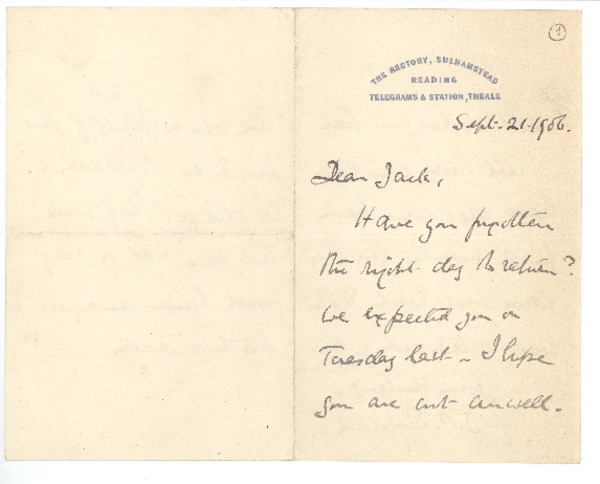 1
THE RECTORY, SULHAMSTEAD
READING
TELEGRAMS & STATION, THEALE
Sept. 21. 1906.
Dear Jack,
Have you forgotten
the right day to return?
We expected you on
Tuesday last - I hope
you are not unwell.